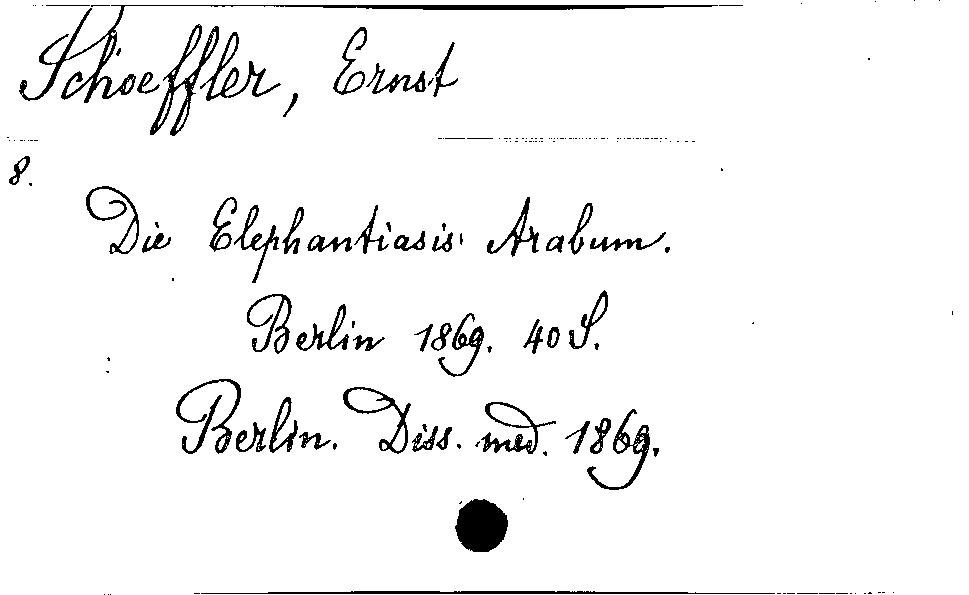 Schoeffler, Ernst
8.
Die Elephantiasis Arabum.
Berlin 1869. 40 S.
Berlin. Diss. med. 1869.